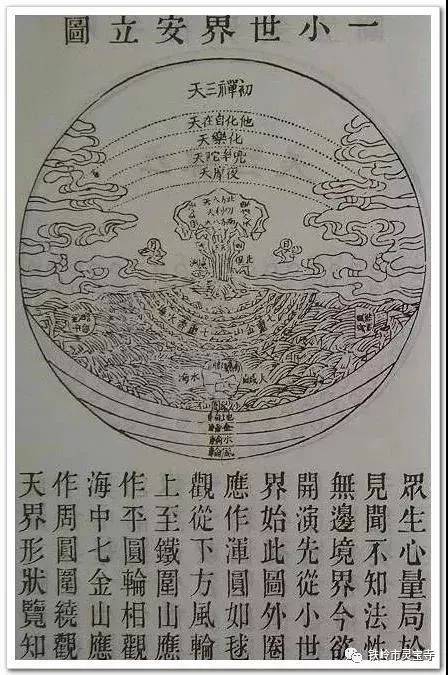 一小世界安立圖
初禪三天
他化自在天
化樂天
兜率陀天
夜摩天
大鹹水海
地輪
金輪
水輪
風輪
眾生心量局於
見聞不知法性
無邊境界今欲
開演先從小世
界始此圖外圈
應作渾圓如球
觀從下方風輪
上至鐵圍山應
作平圓輪相觀
海中七金山應
作周圓圍繞觀
天界形狀覽知
铁岭市灵宝寺